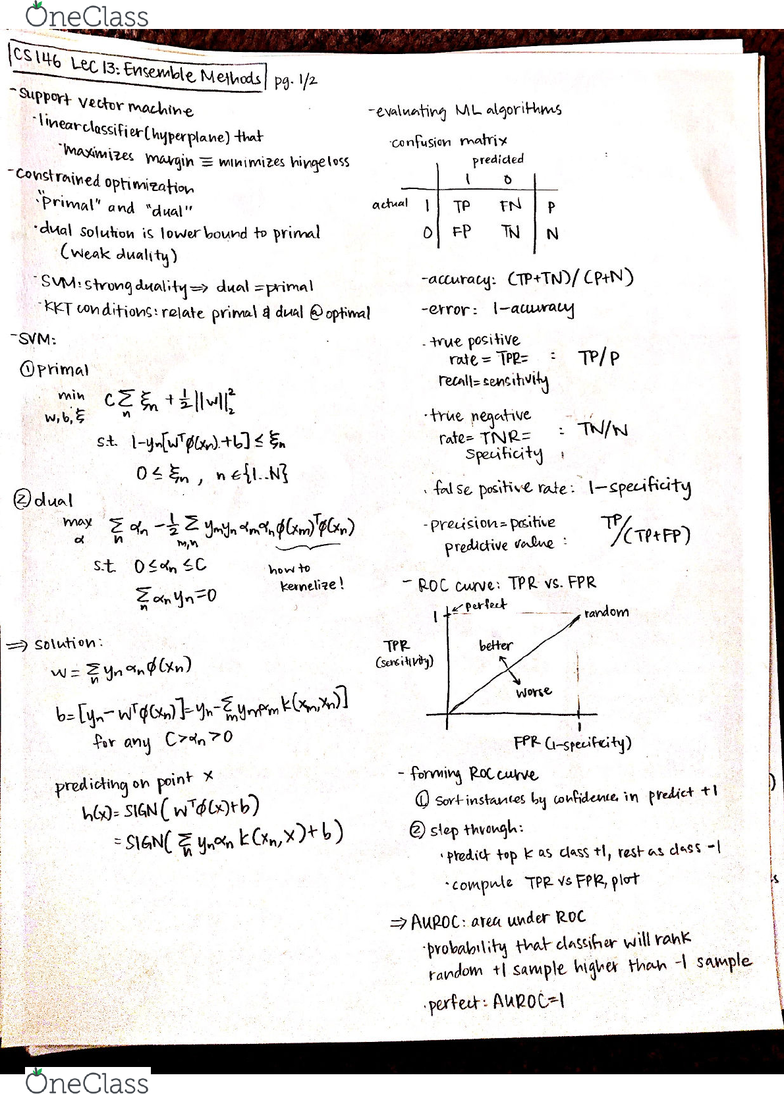 OneClass
CS146 Lec 13: Ensemble Methods pg. 1/2
- Support vector machine
· linear classifier (hyperplane) that
· maximizes margin ≡ minimizes hinge loss
- constrained optimization
· "primal" and "dual"
· dual solution is lower bound to primal
(weak duality)
· SVM: strong duality ⇒ dual = primal
· KKT conditions: relate primal & dual @ optimal
- SVM:
① primal
min w,b,ξ C Σn ξn + 1/2 ||w||₂²
s.t. 1-yn[wᵀφ(xn)+b] ≤ ξn
0 ≤ ξn , n ∈ {1..N}
② dual
max α Σn αn - 1/2 Σm,n ym yn αm αn φ(xm)ᵀφ(xn)
s.t. 0 ≤ αn ≤ C
how to
kernelize!
Σn αn yn = 0
⇒ solution:
w = Σn yn αn φ(xn)
b = [yn - wᵀφ(xn)] = yn - Σm ym αm k(xm, xn)]
for any C > αn > 0
predicting on point x
h(x) = SIGN( wᵀφ(x)+b)
= SIGN( Σn yn αn k(xn, x) + b)
- evaluating ML algorithms
· confusion matrix
predicted
1 0
actual 1 TP FN P
0 FP TN N
- accuracy: (TP+TN)/(P+N)
- error: 1-accuracy
· true positive
rate = TPR = : TP/P
recall = sensitivity
· true negative
rate = TNR = : TN/N
specificity
· false positive rate: 1-specificity
- precision = positive
predictive value : TP/(TP+FP)
- ROC curve: TPR vs. FPR
1 ← perfect
random
TPR
(sensitivity)
better
worse
1
FPR (1-specificity)
- forming ROC curve
① sort instances by confidence in predict +1
② step through:
· predict top k as class +1, rest as class -1
· compute TPR vs FPR, plot
⇒ AUROC: area under ROC
· probability that classifier will rank
random +1 sample higher than -1 sample
· perfect: AUROC=1
OneClass